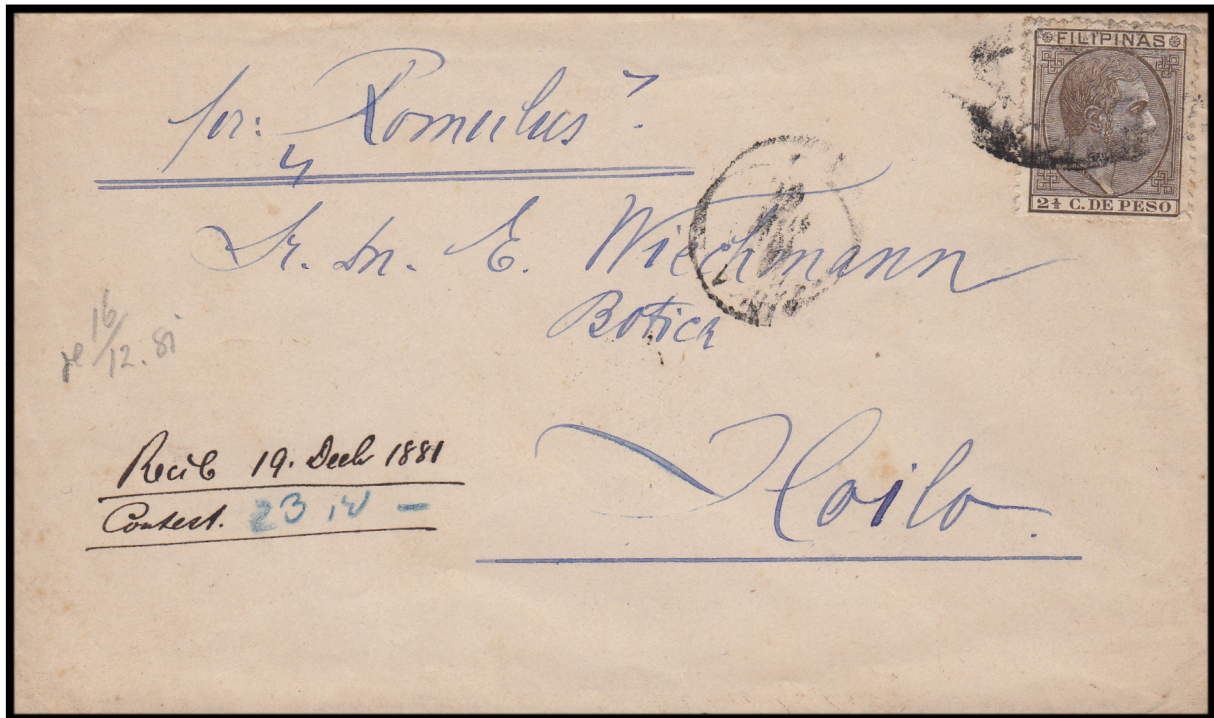 FILIPINAS
2 4/8 C. DE PESO
per: "Romulus".
Sr. Dn. E. Wiechmann
Botica
Iloilo.
16/12. 81
Recib 19. Decbr 1881
Contest. 23 id –